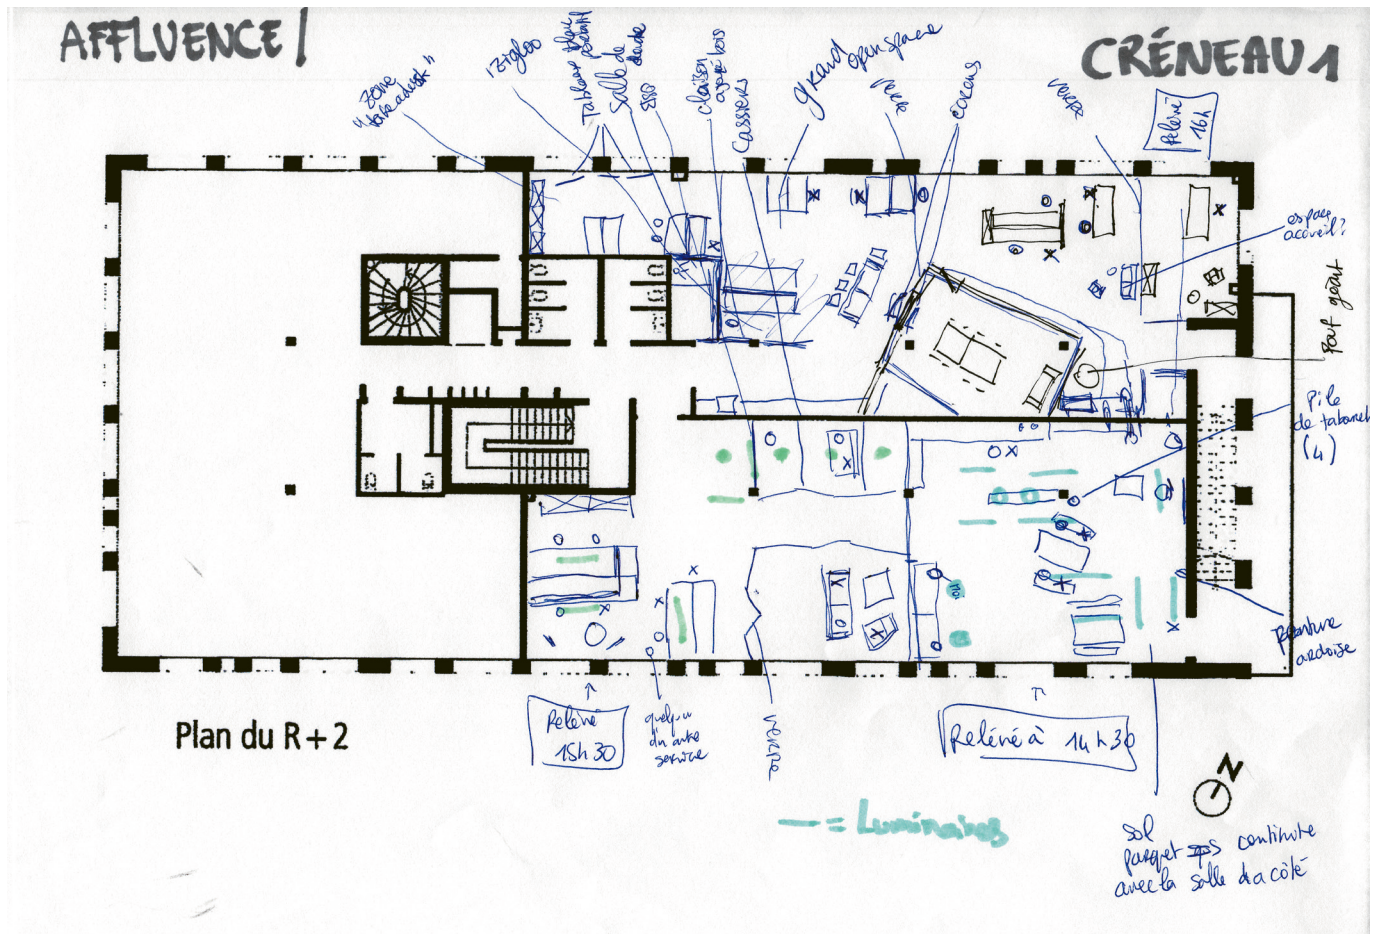 AFFLUENCE /
CRÉNEAU 1
zone
igloo
Tableau blanc
Salle de
claison
bois
Casiers
grand
open space
verre
cocons
verre
Relévé
16h
espace
accueil?
Pouf géant
Pile
de tabouret
(4)
Peinture
ardoise
Plan du R + 2
Relévé
15h30
quelqu'un
d'un autre
service
verre
Relévé à 14h30
N
= Luminaires
sol
parquet continuité
avec la salle d'à côté